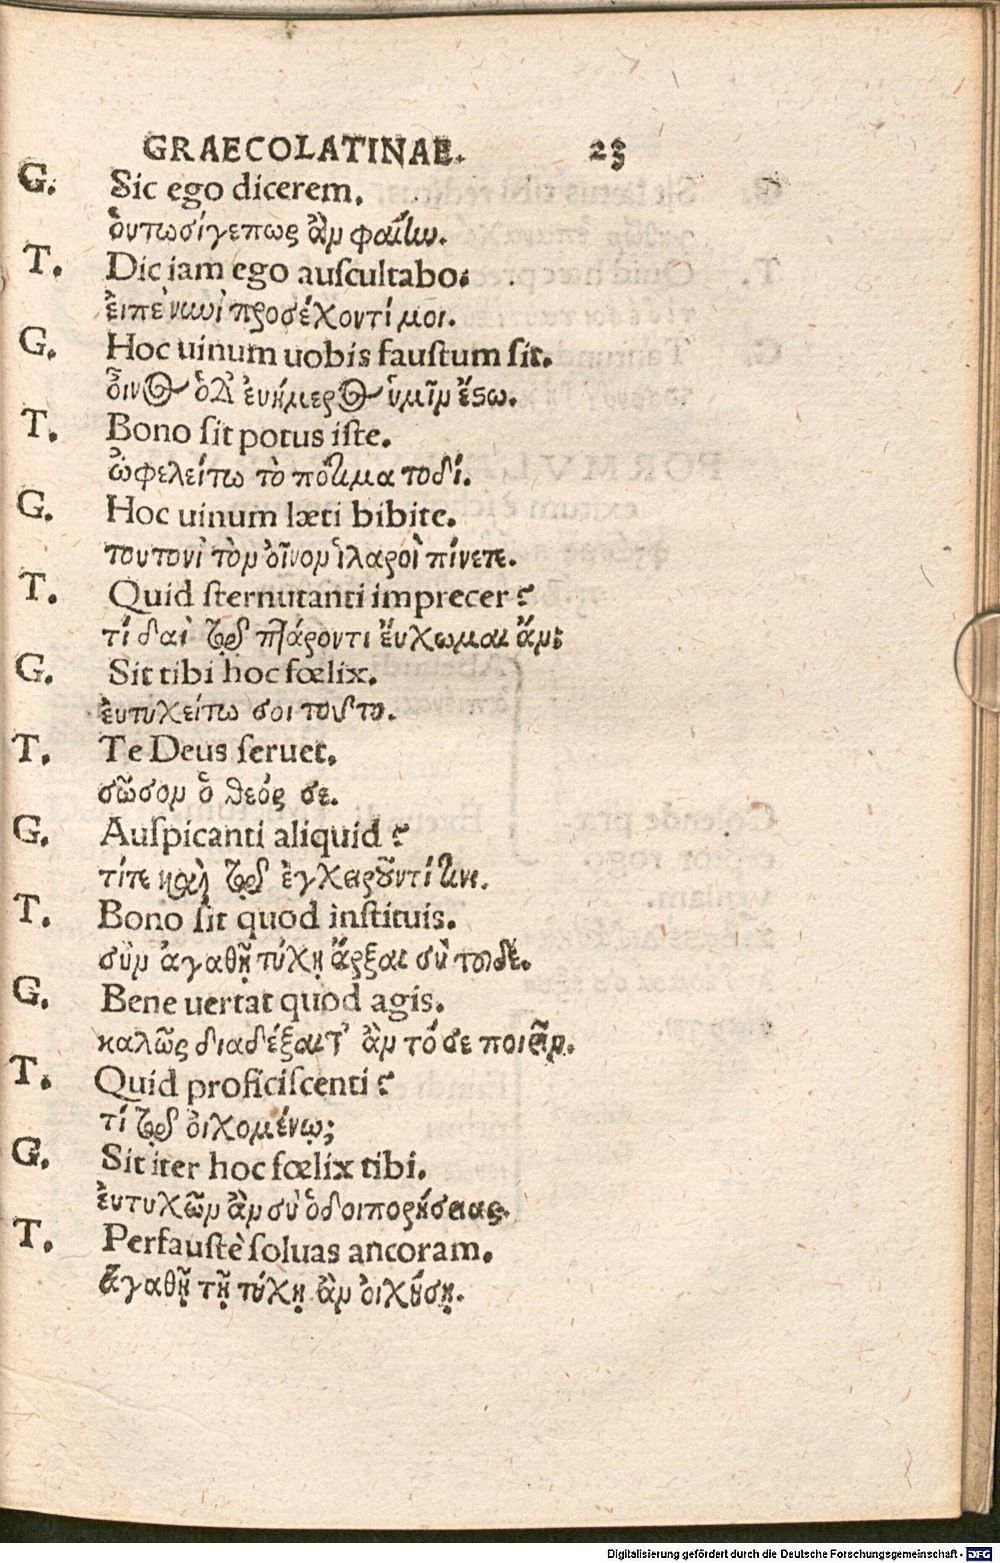 GRAECOLATINAE. 23
G. Sic ego dicerem.
ὁυτωσίγεπως ἂν φαίlω.
T. Dic iam ego auscultabo.
ἐιπὲ νωὶ προσέχοντί μοι.
G. Hoc uinum uobis faustum sit.
οἶνος ὁδ' ἐυήμερος ὑμῖν ἔστω.
T. Bono sit potus iste.
ὠφελείτω τὸ πότιμα τοδί.
G. Hoc uinum læti bibite.
τουτονὶ τὸν ὀῖνον ἱλαροὶ πίνετε.
T. Quid sternutanti imprecer?
τί δαὶ τῷδ πταίροντι ἔυχωμαι ἄν;
G. Sit tibi hoc fœlix.
ἐυτυχείτω σοι τοῦτο.
T. Te Deus seruet.
σῶσον ὁ θεός σε.
G. Auspicanti aliquid?
τίτε καὶ τῷδ ἐγχειροῦντί τινι.
T. Bono sit quod instituis.
σὺν ἀγαθῇ τύχῃ ἄρξαι σὺ τοῦδε.
G. Bene uertat quod agis.
καλῶς διαδέξαιτ' ἂν τό σε ποιεῖν.
T. Quid proficiscenti?
τί τῷδ ὀιχομένῳ;
G. Sit iter hoc fœlix tibi.
ἐυτυχῶν ἂν σὺ ὁδοιπορήσειας.
T. Perfaustè soluas ancoram.
ἀγαθῇ τῇ τύχῃ ἂν ὀιχήσῃ.
Digitalisierung gefördert durch die Deutsche Forschungsgemeinschaft - DFG